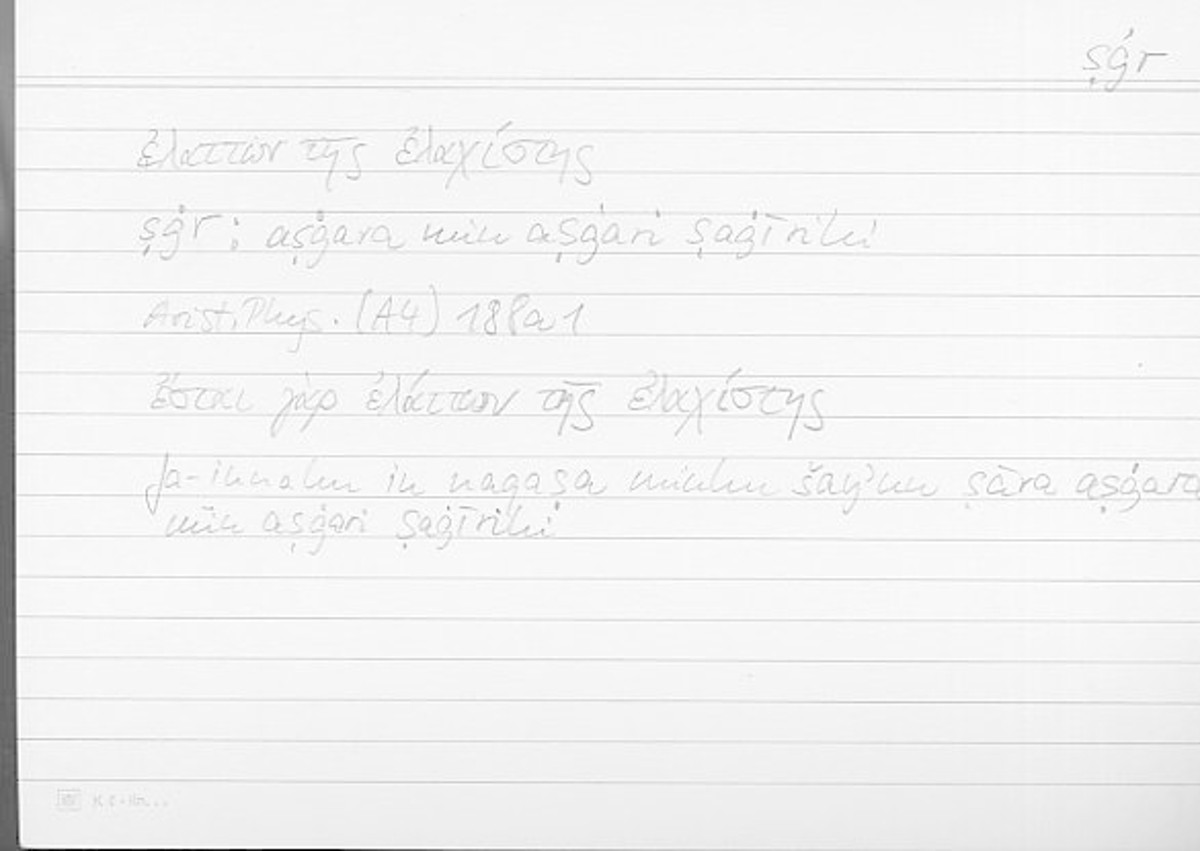 ṣġr
ἐλαττων τῆς ἐλαχίστης
ṣġr : aṣġara min aṣġari ṣaġīrihi
Arist. Phys. (A4) 188a1
ἔσται γὰρ ἐλάττων τῆς ἐλαχίστης
fa-innahu in naqaṣa minhu šay'un ṣāra aṣġara
min aṣġari ṣaġīrihi